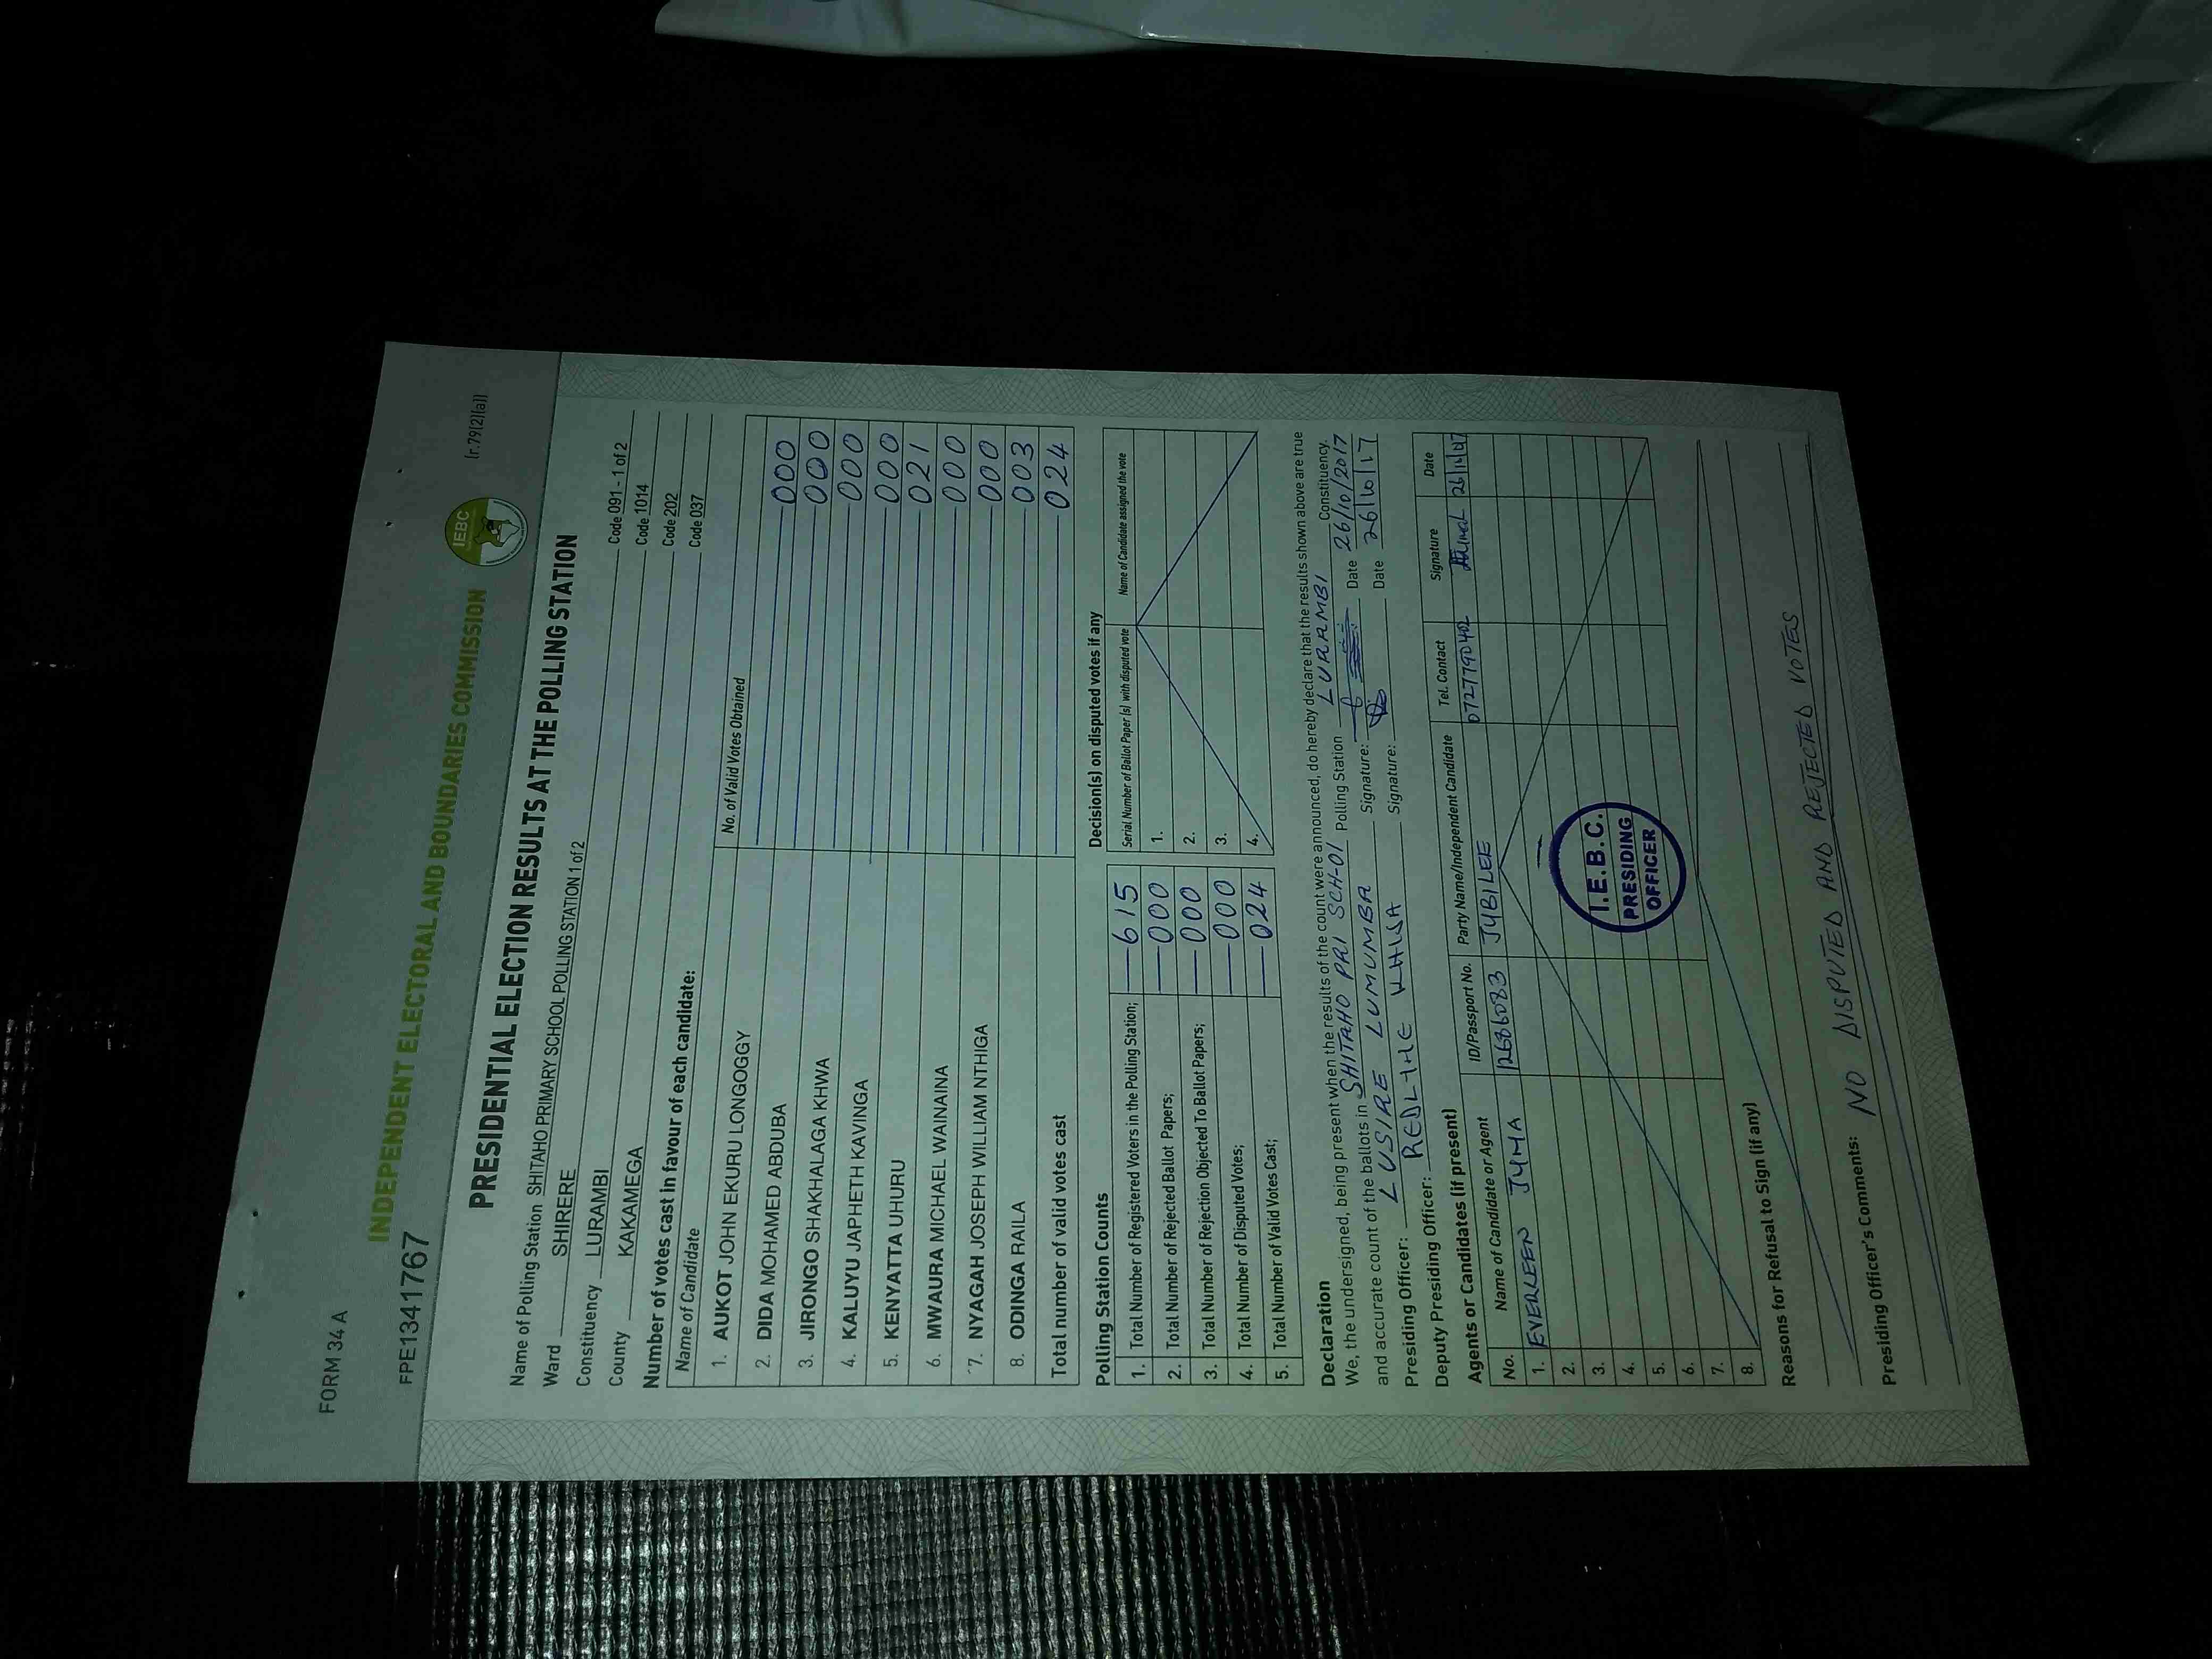 FORM 34 A
FPE1341767
INDEPENDENT ELECTORAL AND BOUNDARIES COMMISSION
IEBC
(r.79(2)(a))
PRESIDENTIAL ELECTION RESULTS AT THE POLLING STATION
Name of Polling Station SHITAHO PRIMARY SCHOOL POLLING STATION 1 of 2 Code 091 - 1 of 2
Ward SHIRERE Code 1014
Constituency LURAMBI Code 202
County KAKAMEGA Code 037
Number of votes cast in favour of each candidate:
Name of Candidate No. of Valid Votes Obtained
1. AUKOT JOHN EKURU LONGOGGY 000
2. DIDA MOHAMED ABDUBA 000
3. JIRONGO SHAKHALAGA KHWA 000
4. KALUYU JAPHETH KAVINGA 000
5. KENYATTA UHURU 021
6. MWAURA MICHAEL WAINAINA 000
7. NYAGAH JOSEPH WILLIAM NTHIGA 000
8. ODINGA RAILA 003
Total number of valid votes cast 024
Polling Station Counts
1. Total Number of Registered Voters in the Polling Station; 615
2. Total Number of Rejected Ballot Papers; 000
3. Total Number of Rejection Objected To Ballot Papers; 000
4. Total Number of Disputed Votes; 000
5. Total Number of Valid Votes Cast; 024
Decision(s) on disputed votes if any
Serial Number of Ballot Paper (s) with disputed vote Name of Candidate assigned the vote
1.
2.
3.
4.
Declaration
We, the undersigned, being present when the results of the count were announced, do hereby declare that the results shown above are true
and accurate count of the ballots in SHITAHO PRI SCH-01 Polling Station LURAMBI Constituency.
Presiding Officer: LUSIRE LUMUMBA Signature: Date 26/10/2017
Deputy Presiding Officer: REDLIHE KHISA Signature: Date 26/10/17
Agents or Candidates (if present)
No. Name of Candidate or Agent ID/Passport No. Party Name/Independent Candidate Tel. Contact Signature Date
1. EVERLEEN JUMA 12686083 JUBILEE 0727790402
2.
3.
4.
5.
6.
7.
8.
I.E.B.C.
PRESIDING
OFFICER
Reasons for Refusal to Sign (if any)
Presiding Officer's Comments: NO DISPUTED AND REJECTED VOTES